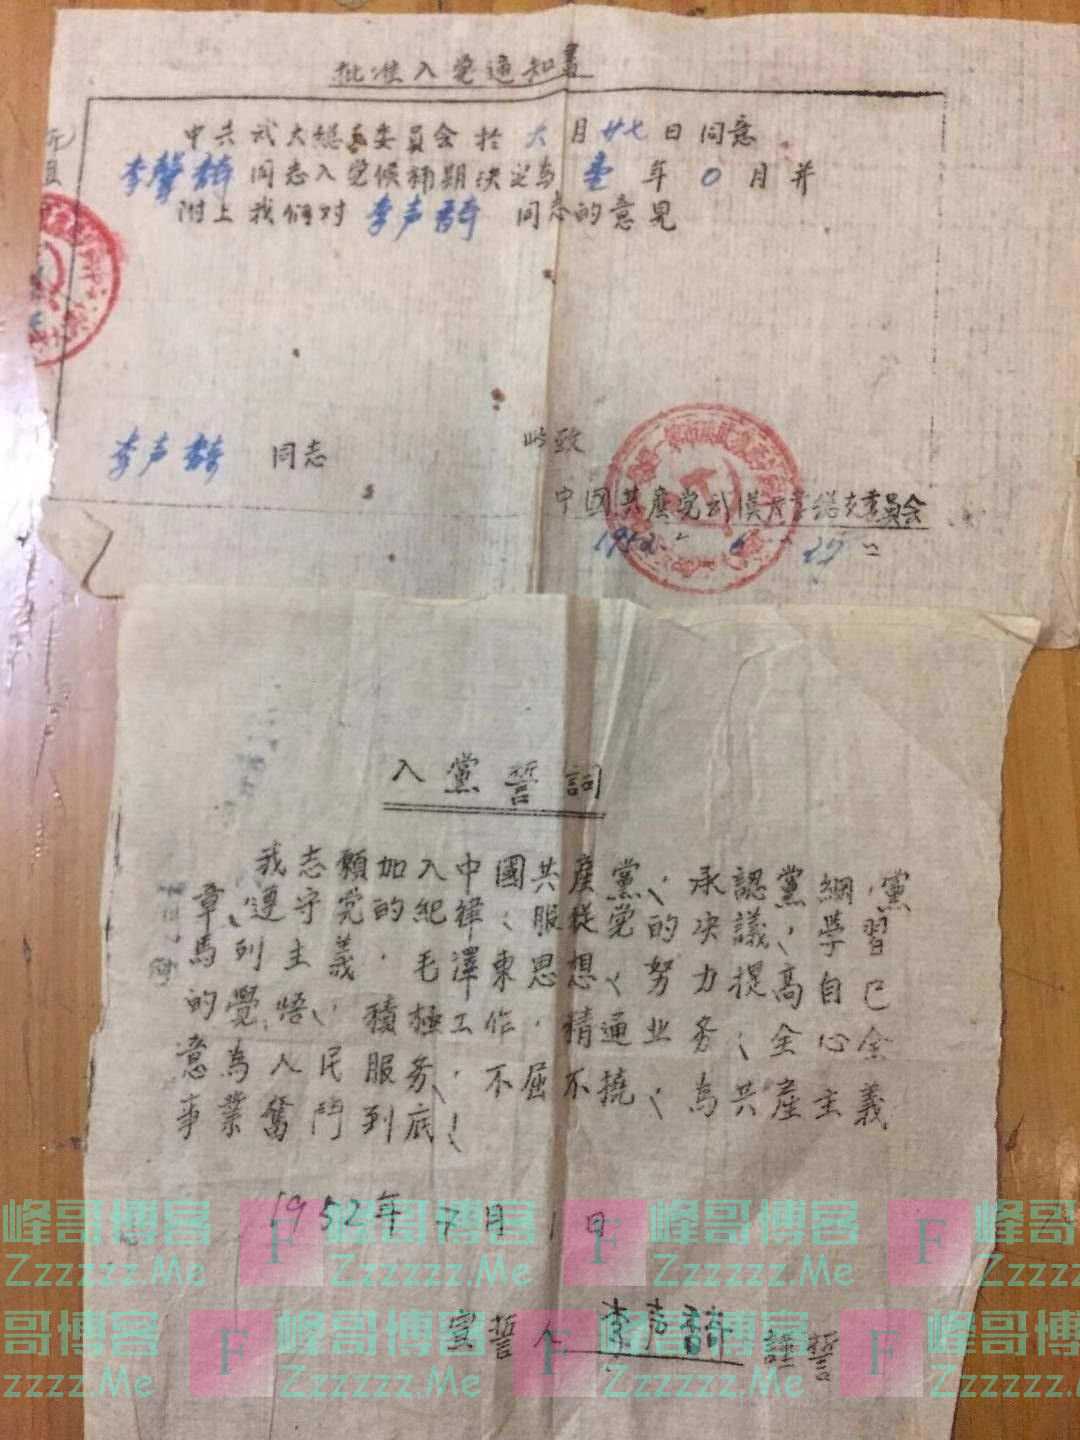 批准入党通知書
中共武大總支委員会於 六 月 廿七 日同意
李馨 同志入党候補期决定為 壹 年 0 月并
附上我们对 李声 同志的意見
此致
李声 同志
中國共産党武漢大学總支委員会
1952 6 27
入黨誓詞
我志願加入中國共産黨、承認黨綱,黨
章、遵守党的紀律、服從党的决議、學習
馬列主義,毛澤東思想、努力提高自己
的覺悟、積極工作,精通业务、全心全
意為人民服务、不屈不撓、為共產主義
事業奮鬥到底!
1952年7月1日
宣誓人 李声 謹誓
峰哥博客
Zzzzzz.Me
F
峰哥博客
Zzzzzz.Me
F
峰哥博客
Zzzzzz.Me
F
哥博客
zzzz.Me
F
峰哥博客
Zzzzzz.Me
F
峰哥博客
Zzzzzz.Me
F
峰哥博
Zzzzzz.M